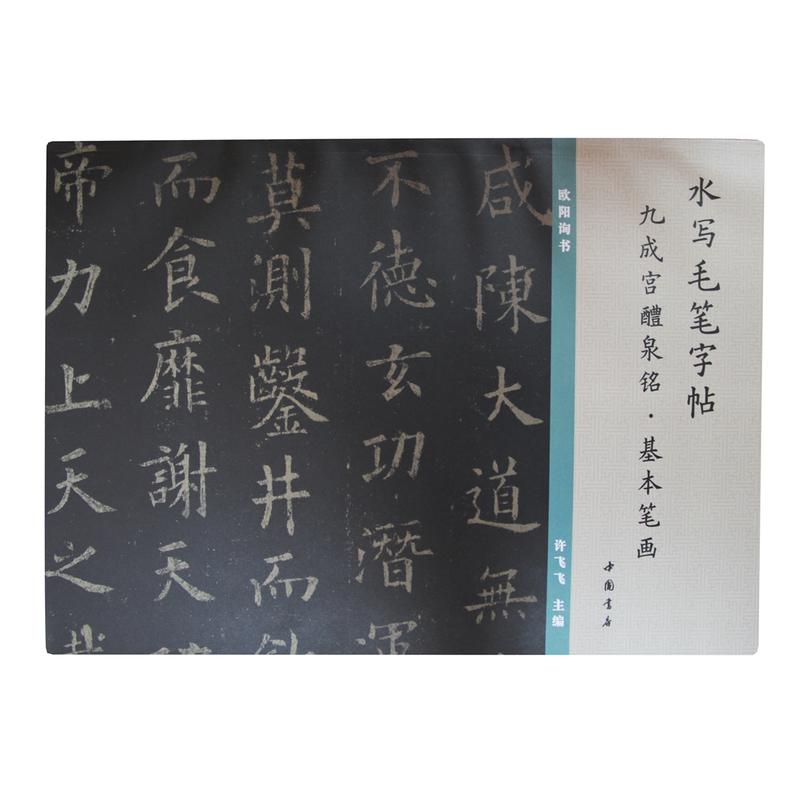 水写毛笔字帖
九成宫醴泉铭·基本笔画
中国书店
欧阳询书
许飞飞 主编
咸陳大道無
不德玄功潛運
莫測鑿井而飲
而食靡謝天
帝力上天之載